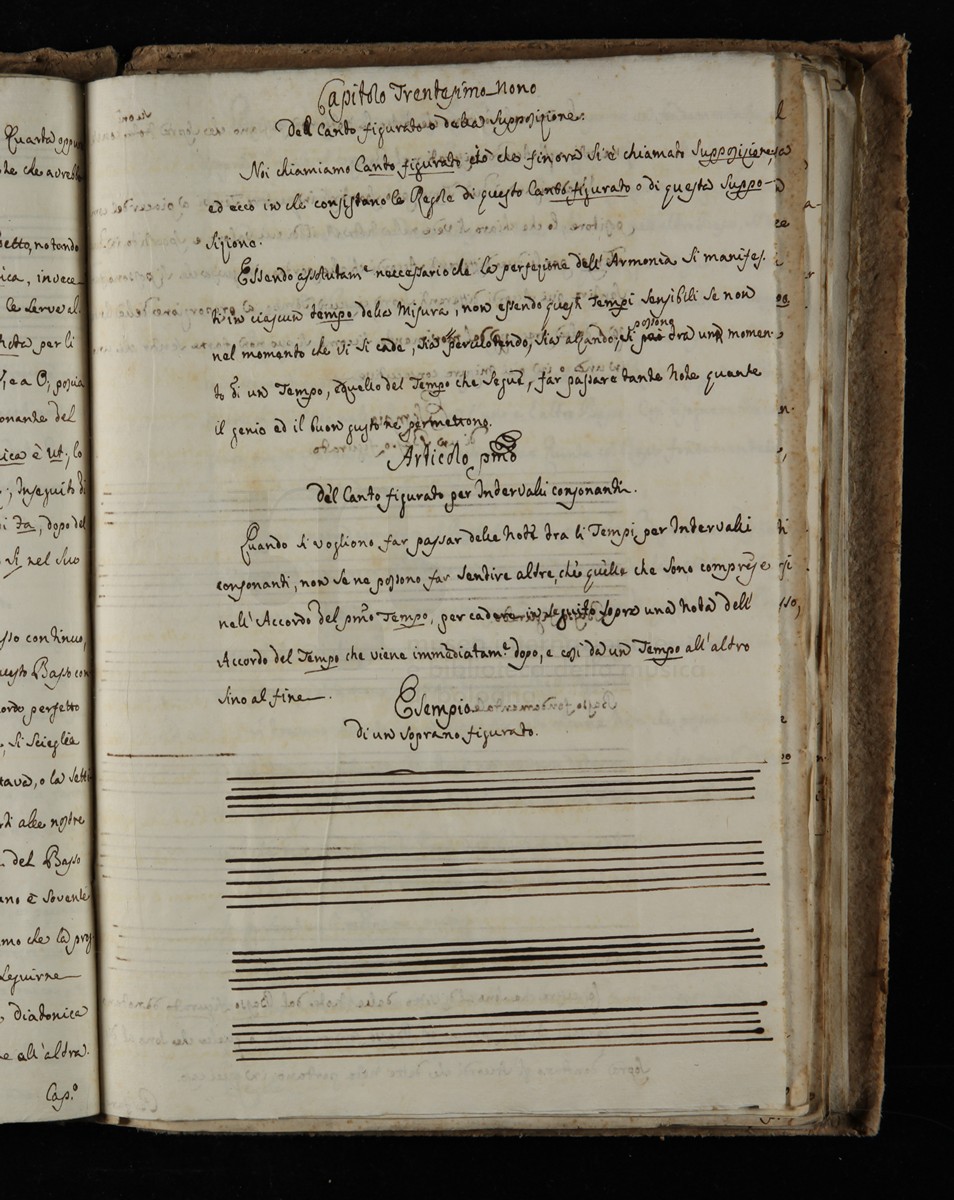 Quarta oppu
che che avrebb
petto, notando
ica, invece
ce serve al
per li
V, e a O, possia
onante del
ica è ut; lo
; Inseguito di
i fa, dopo del
si, nel suo
sso continuo,
uesto Basso con
ordo perfetto
, si scieglia
tava, o la setti
rti alle nostre
del Basso
ano è sovente
mo che la prog
seguirne
, diatonica
ne all'altra.
Cap.º
Capitolo Trentesimo Nono
Del Canto figurato o della Supposizione.
Noi chiamiamo Canto figurato ciò che finora si è chiamato Supposizione,
ed ecco in che consistano le Regole di questo Canto figurato o di questa Suppo-
sizione.
Essendo assolutam.e neccessario che la perfezione dell'Armonia si manifes-
ti in ciascun tempo della Misura, non essendo questi Tempi sensibili se non
nel momento che vi si cade, sia percuotendo, sia alzando; si possono tra un momen-
to di un Tempo, e quello del Tempo che segue, far passare tante Note quante
il genio ed il buon gusto ne permettono.
Articolo pmo
Del Canto figurato per Intervalli consonanti.
Quando si vogliono far passar delle Note tra li Tempi per Intervalli
consonanti, non se ne possono far sentire altre, che quelle che sono comprese
nell'Accordo del pmo Tempo, per cadere in seguito sopra una Nota dell'
Accordo del Tempo che viene immediatam.e dopo, e così da un Tempo all'altro
sino al fine.
Esempio
di un soprano figurato.